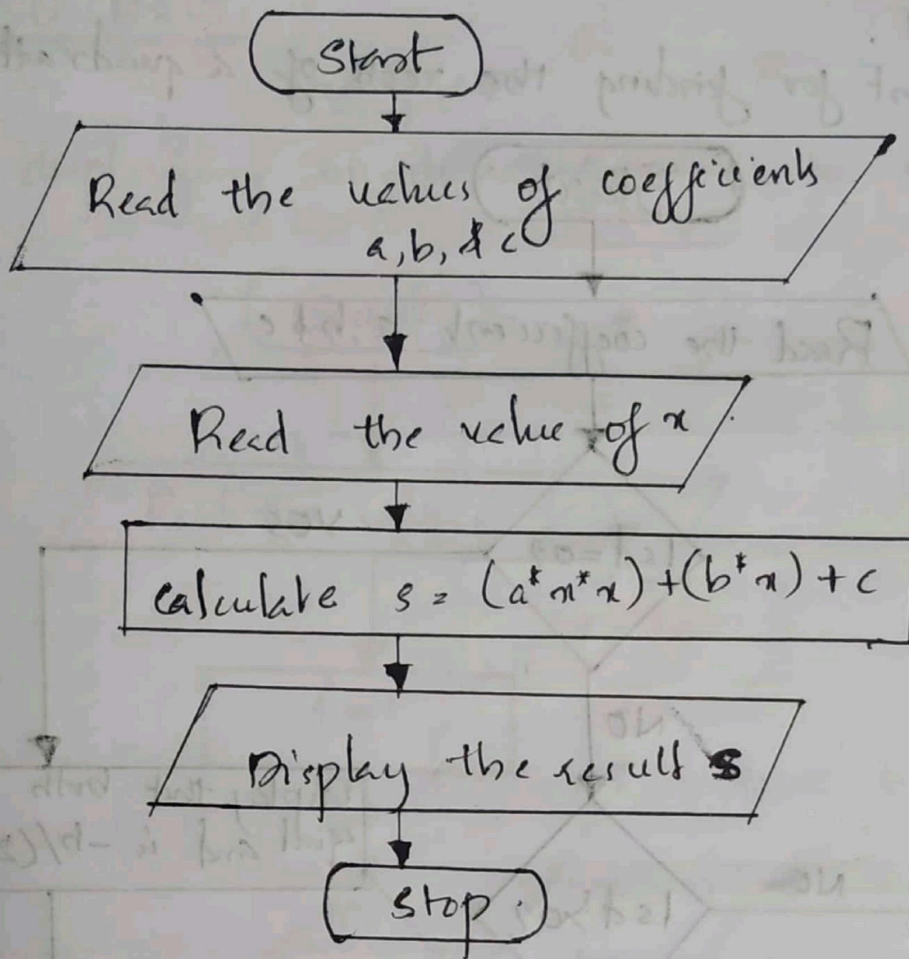 Start
Read the values of coefficients
a, b, & c
Read the value of x
calculate s = (a*x*x) + (b*x) + c
Display the result s
Stop.